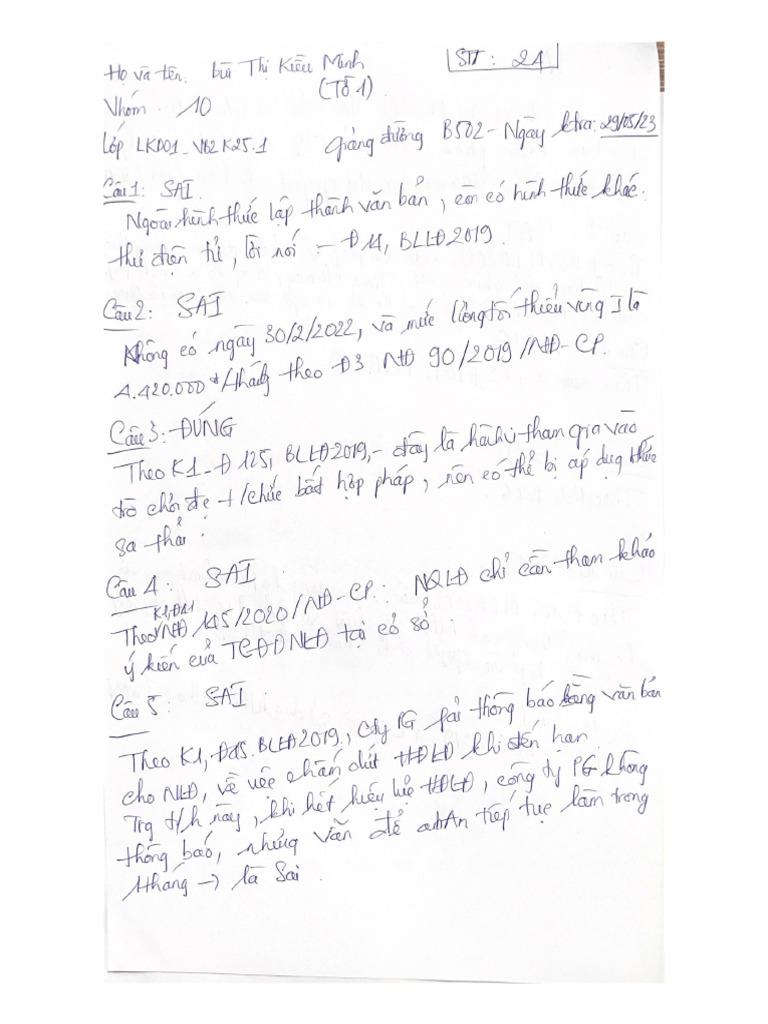 Họ và tên: Bùi Thị Kiều Minh
STT: 24
(Tổ 1)
Nhóm 10
Lớp LKD01_VB2K25.1 Giảng đường B502 - Ngày ktra: 29/05/23
Câu 1: SAI.
Ngoài hình thức lập thành văn bản, còn có hình thức khác:
thư điện tử, lời nói - Đ14, BLLĐ 2019.
Câu 2: SAI
Không có ngày 30/2/2022, và mức lương tối thiểu vùng I là
4.420.000đ/tháng theo Đ3 NĐ 90/2019/NĐ-CP.
Câu 3: ĐÚNG
Theo K1_Đ125, BLLĐ 2019, - đây là hành vi tham gia vào
trò chơi đc t/chức bất hợp pháp, nên có thể bị áp dụg thức
sa thải.
Câu 4: SAI
K1,Đ41
Theo NĐ 145/2020/NĐ-CP. NSLĐ chỉ cần tham khảo
ý kiến của TCĐDNLĐ tại cơ sở.
Câu 5: SAI
Theo K1, Đ45. BLLĐ 2019., Cty PG fải thông báo bằng văn bản
cho NLĐ, về việc chấm dứt HĐLĐ khi đến hạn.
Trg t/h này, khi hết hiệu lực HĐLĐ, công ty PG không
thông báo, nhưng vẫn để anh An tiếp tục làm trong
1 tháng → là Sai.